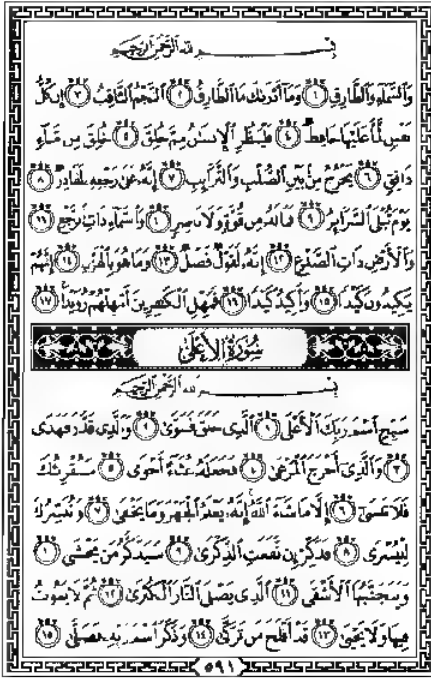 بِسْمِ ٱللَّهِ ٱلرَّحْمَٰنِ ٱلرَّحِيمِ
وَٱلسَّمَآءِ وَٱلطَّارِقِ ١ وَمَآ أَدْرَىٰكَ مَا ٱلطَّارِقُ ٢ ٱلنَّجْمُ ٱلثَّاقِبُ ٣ إِن كُلُّ
نَفْسٍ لَّمَّا عَلَيْهَا حَافِظٌ ٤ فَلْيَنظُرِ ٱلْإِنسَٰنُ مِمَّ خُلِقَ ٥ خُلِقَ مِن مَّآءٍ
دَافِقٍ ٦ يَخْرُجُ مِنۢ بَيْنِ ٱلصُّلْبِ وَٱلتَّرَآئِبِ ٧ إِنَّهُۥ عَلَىٰ رَجْعِهِۦ لَقَادِرٌ ٨
يَوْمَ تُبْلَى ٱلسَّرَآئِرُ ٩ فَمَا لَهُۥ مِن قُوَّةٍ وَلَا نَاصِرٍ ١٠ وَٱلسَّمَآءِ ذَاتِ ٱلرَّجْعِ ١١
وَٱلْأَرْضِ ذَاتِ ٱلصَّدْعِ ١٢ إِنَّهُۥ لَقَوْلٌ فَصْلٌ ١٣ وَمَا هُوَ بِٱلْهَزْلِ ١٤ إِنَّهُمْ
يَكِيدُونَ كَيْدًا ١٥ وَأَكِيدُ كَيْدًا ١٦ فَمَهِّلِ ٱلْكَٰفِرِينَ أَمْهِلْهُمْ رُوَيْدًۢا ١٧
سُورَةُ الأَعْلَىٰ
بِسْمِ ٱللَّهِ ٱلرَّحْمَٰنِ ٱلرَّحِيمِ
سَبِّحِ ٱسْمَ رَبِّكَ ٱلْأَعْلَى ١ ٱلَّذِى خَلَقَ فَسَوَّىٰ ٢ وَٱلَّذِى قَدَّرَ فَهَدَىٰ
٣ وَٱلَّذِىٓ أَخْرَجَ ٱلْمَرْعَىٰ ٤ فَجَعَلَهُۥ غُثَآءً أَحْوَىٰ ٥ سَنُقْرِئُكَ
فَلَا تَنسَىٰٓ ٦ إِلَّا مَا شَآءَ ٱللَّهُ إِنَّهُۥ يَعْلَمُ ٱلْجَهْرَ وَمَا يَخْفَىٰ ٧ وَنُيَسِّرُكَ
لِلْيُسْرَىٰ ٨ فَذَكِّرْ إِن نَّفَعَتِ ٱلذِّكْرَىٰ ٩ سَيَذَّكَّرُ مَن يَخْشَىٰ ١٠
وَيَتَجَنَّبُهَا ٱلْأَشْقَى ١١ ٱلَّذِى يَصْلَى ٱلنَّارَ ٱلْكُبْرَىٰ ١٢ ثُمَّ لَا يَمُوتُ
فِيهَا وَلَا يَحْيَىٰ ١٣ قَدْ أَفْلَحَ مَن تَزَكَّىٰ ١٤ وَذَكَرَ ٱسْمَ رَبِّهِۦ فَصَلَّىٰ ١٥
٥٩١